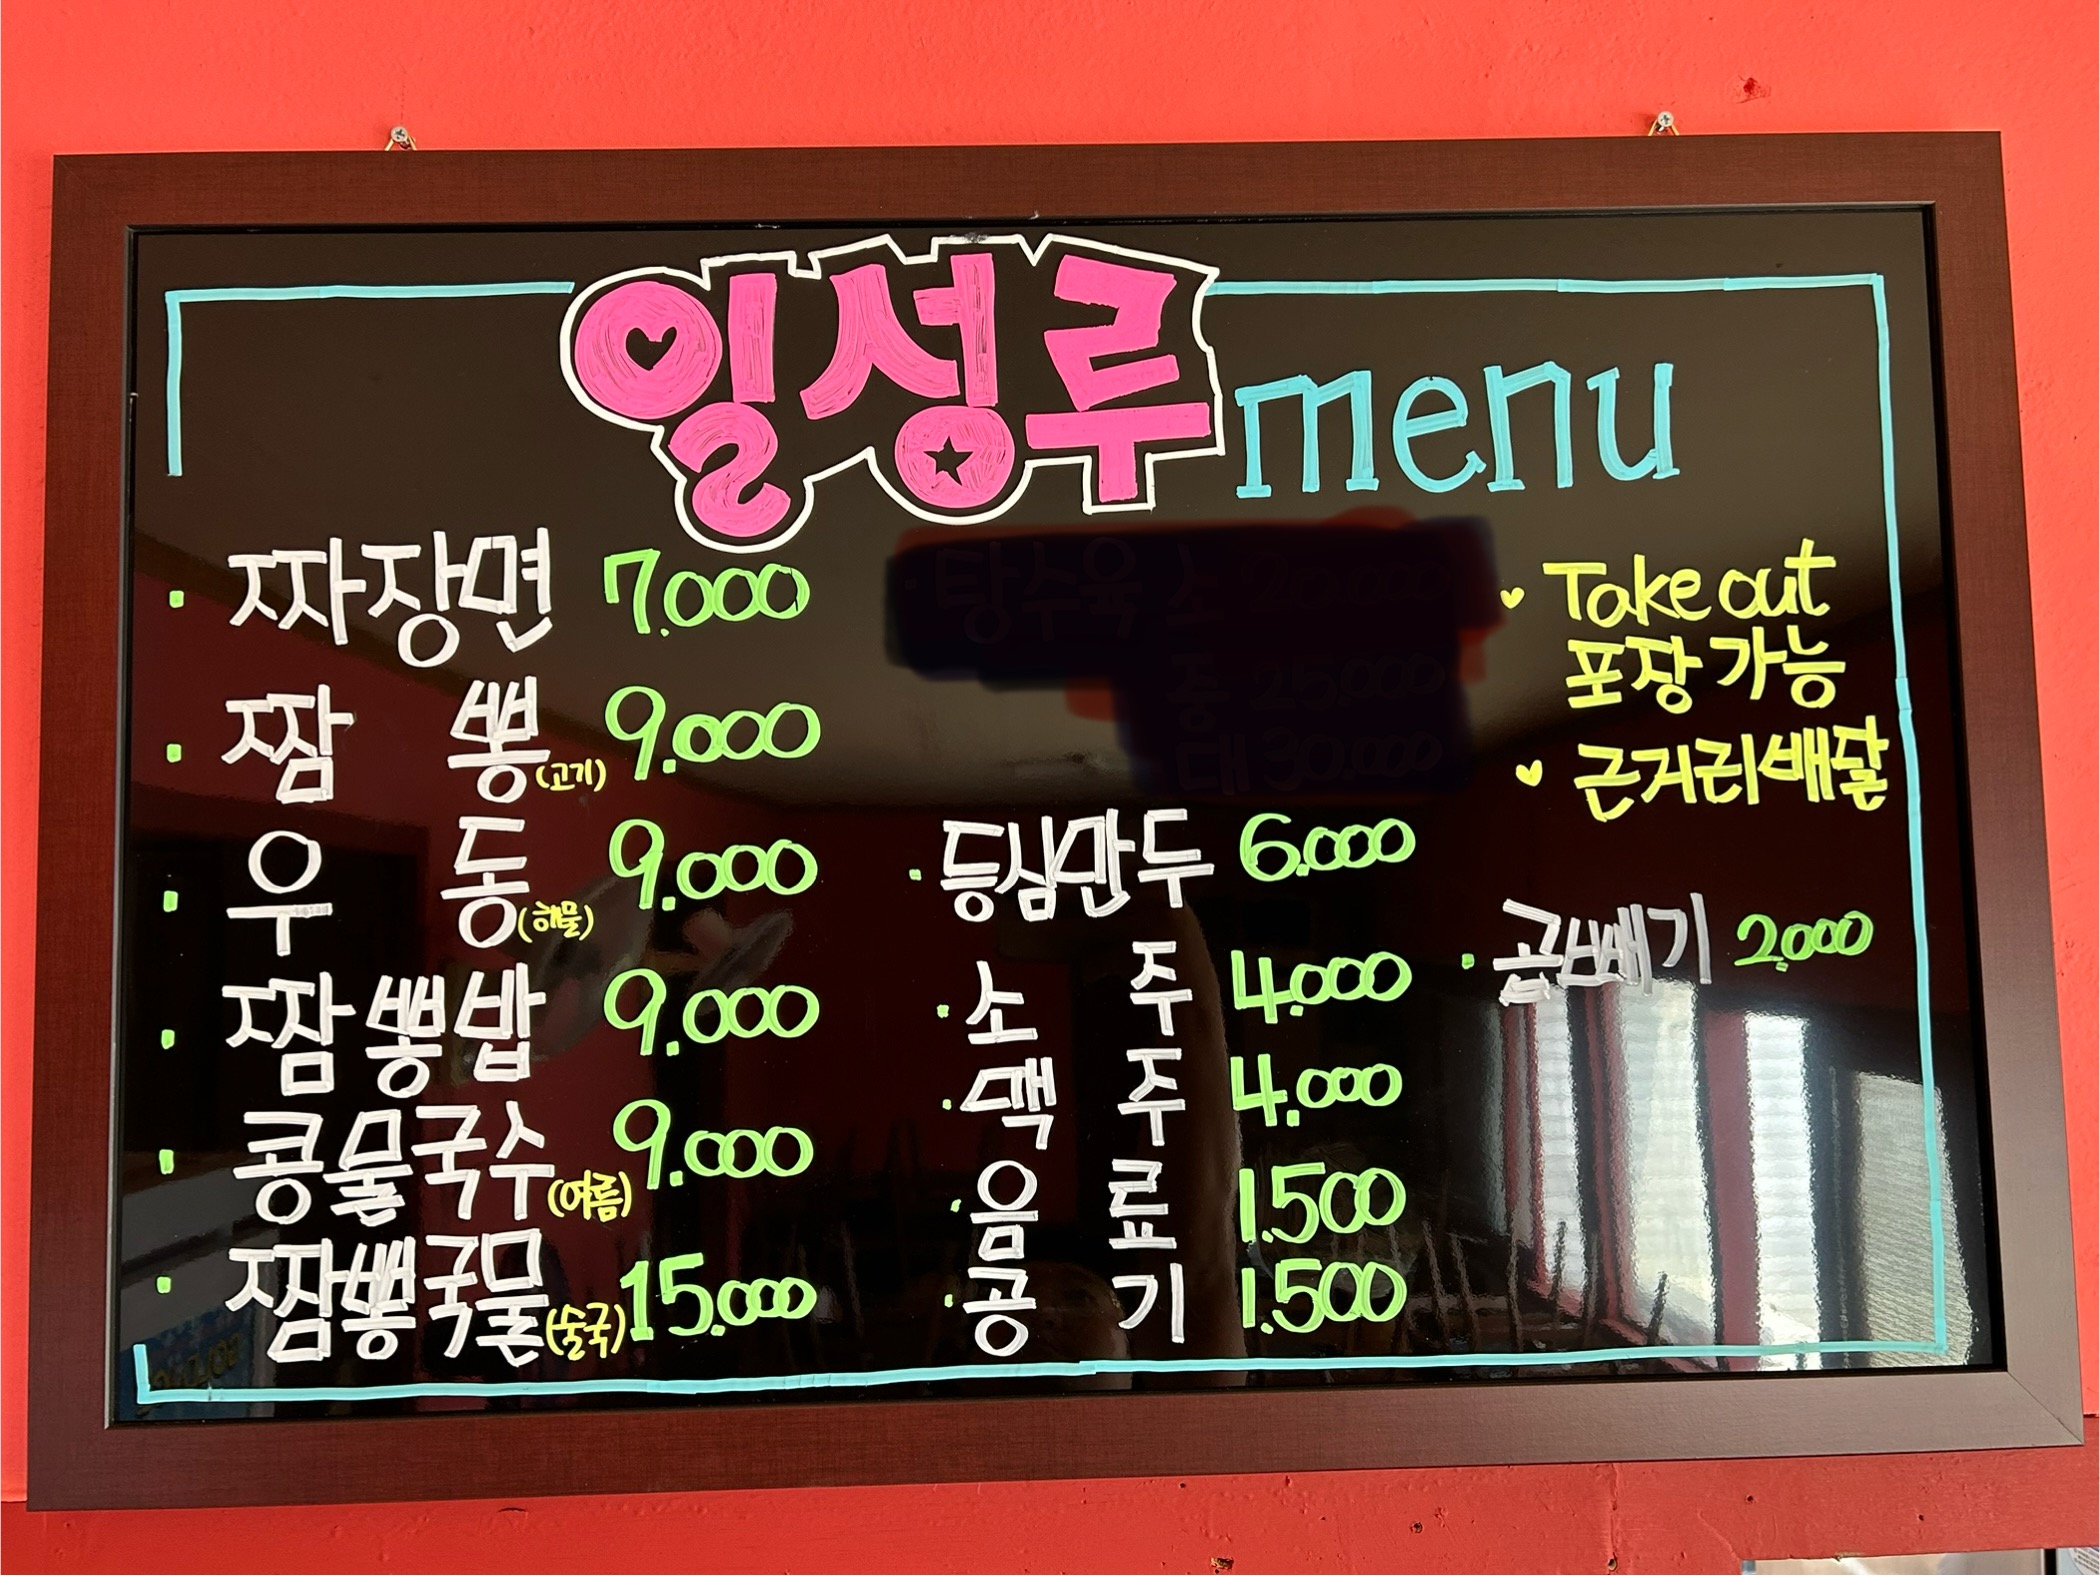 일성루 menu
짜장면 7.000
짬 뽕 (고기) 9.000
우 동 (해물) 9.000
짬뽕밥 9.000
콩물국수 (여름) 9.000
짬뽕국물 (술국) 15.000
탕수육 소
중 25.000
대 30.000
등심만두 6.000
소 주 4.000
맥 주 4.000
음 료 1.500
공 기 1.500
Take out
포장 가능
근거리배달
곱빼기 2.000